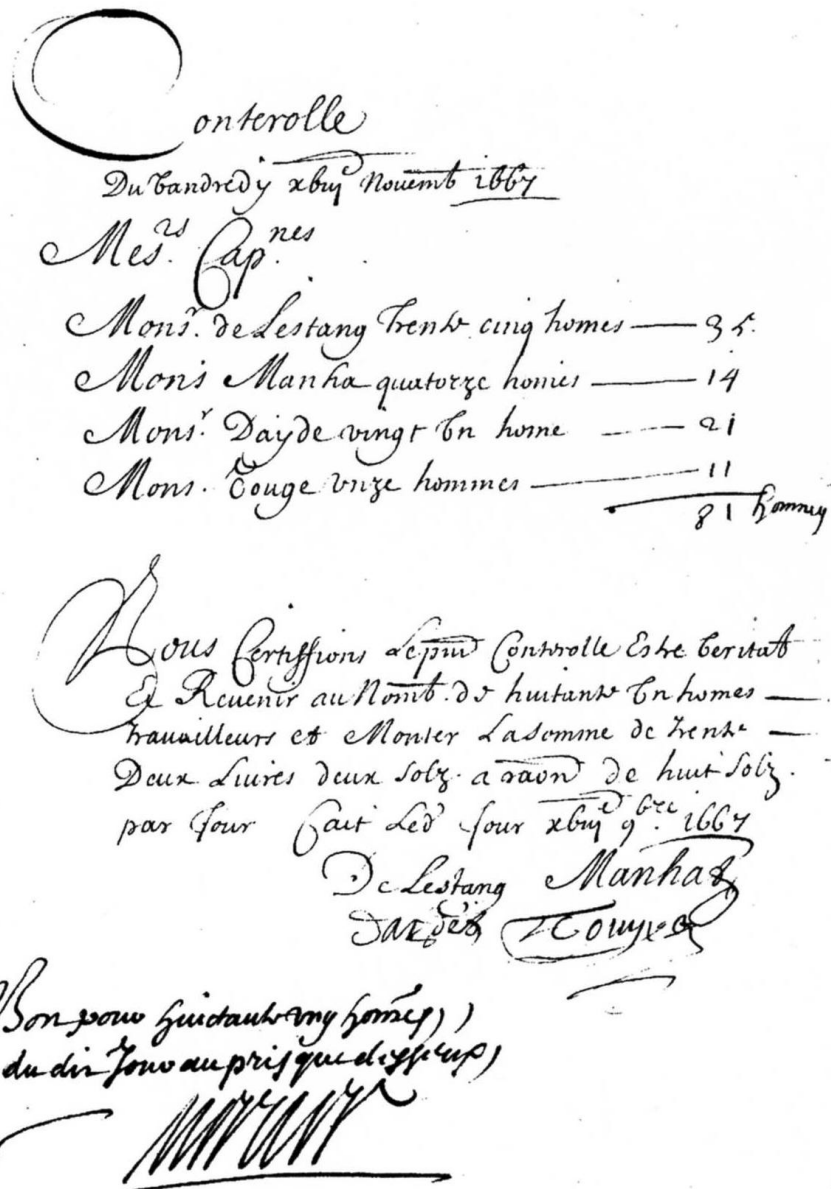 Conterolle
Du Vandredy xbiii^e Novemb 1667
Mes^rs. Cap^nes.
Mons^r. de Lestang Trente cinq homes — 35.
Mons Manha quatorze homes — 14
Mons^r. Dayde vingt Un home — 21
Mons. Touge unze hommes — 11
81 hommes
Nous Certiffions Lepnt Conterolle Estre Veritab
Et Revenir au Nomb. de huitante Un homes —
travailleurs et Monter La somme de trente —
Deux Livres deux solz. a raon de huit solz.
par Jour fait Led Jour xbiii^e 9^bre. 1667
De Lestang Manhat
Bon pour huictante ung homes,
du dit Jour au pris que dessus,